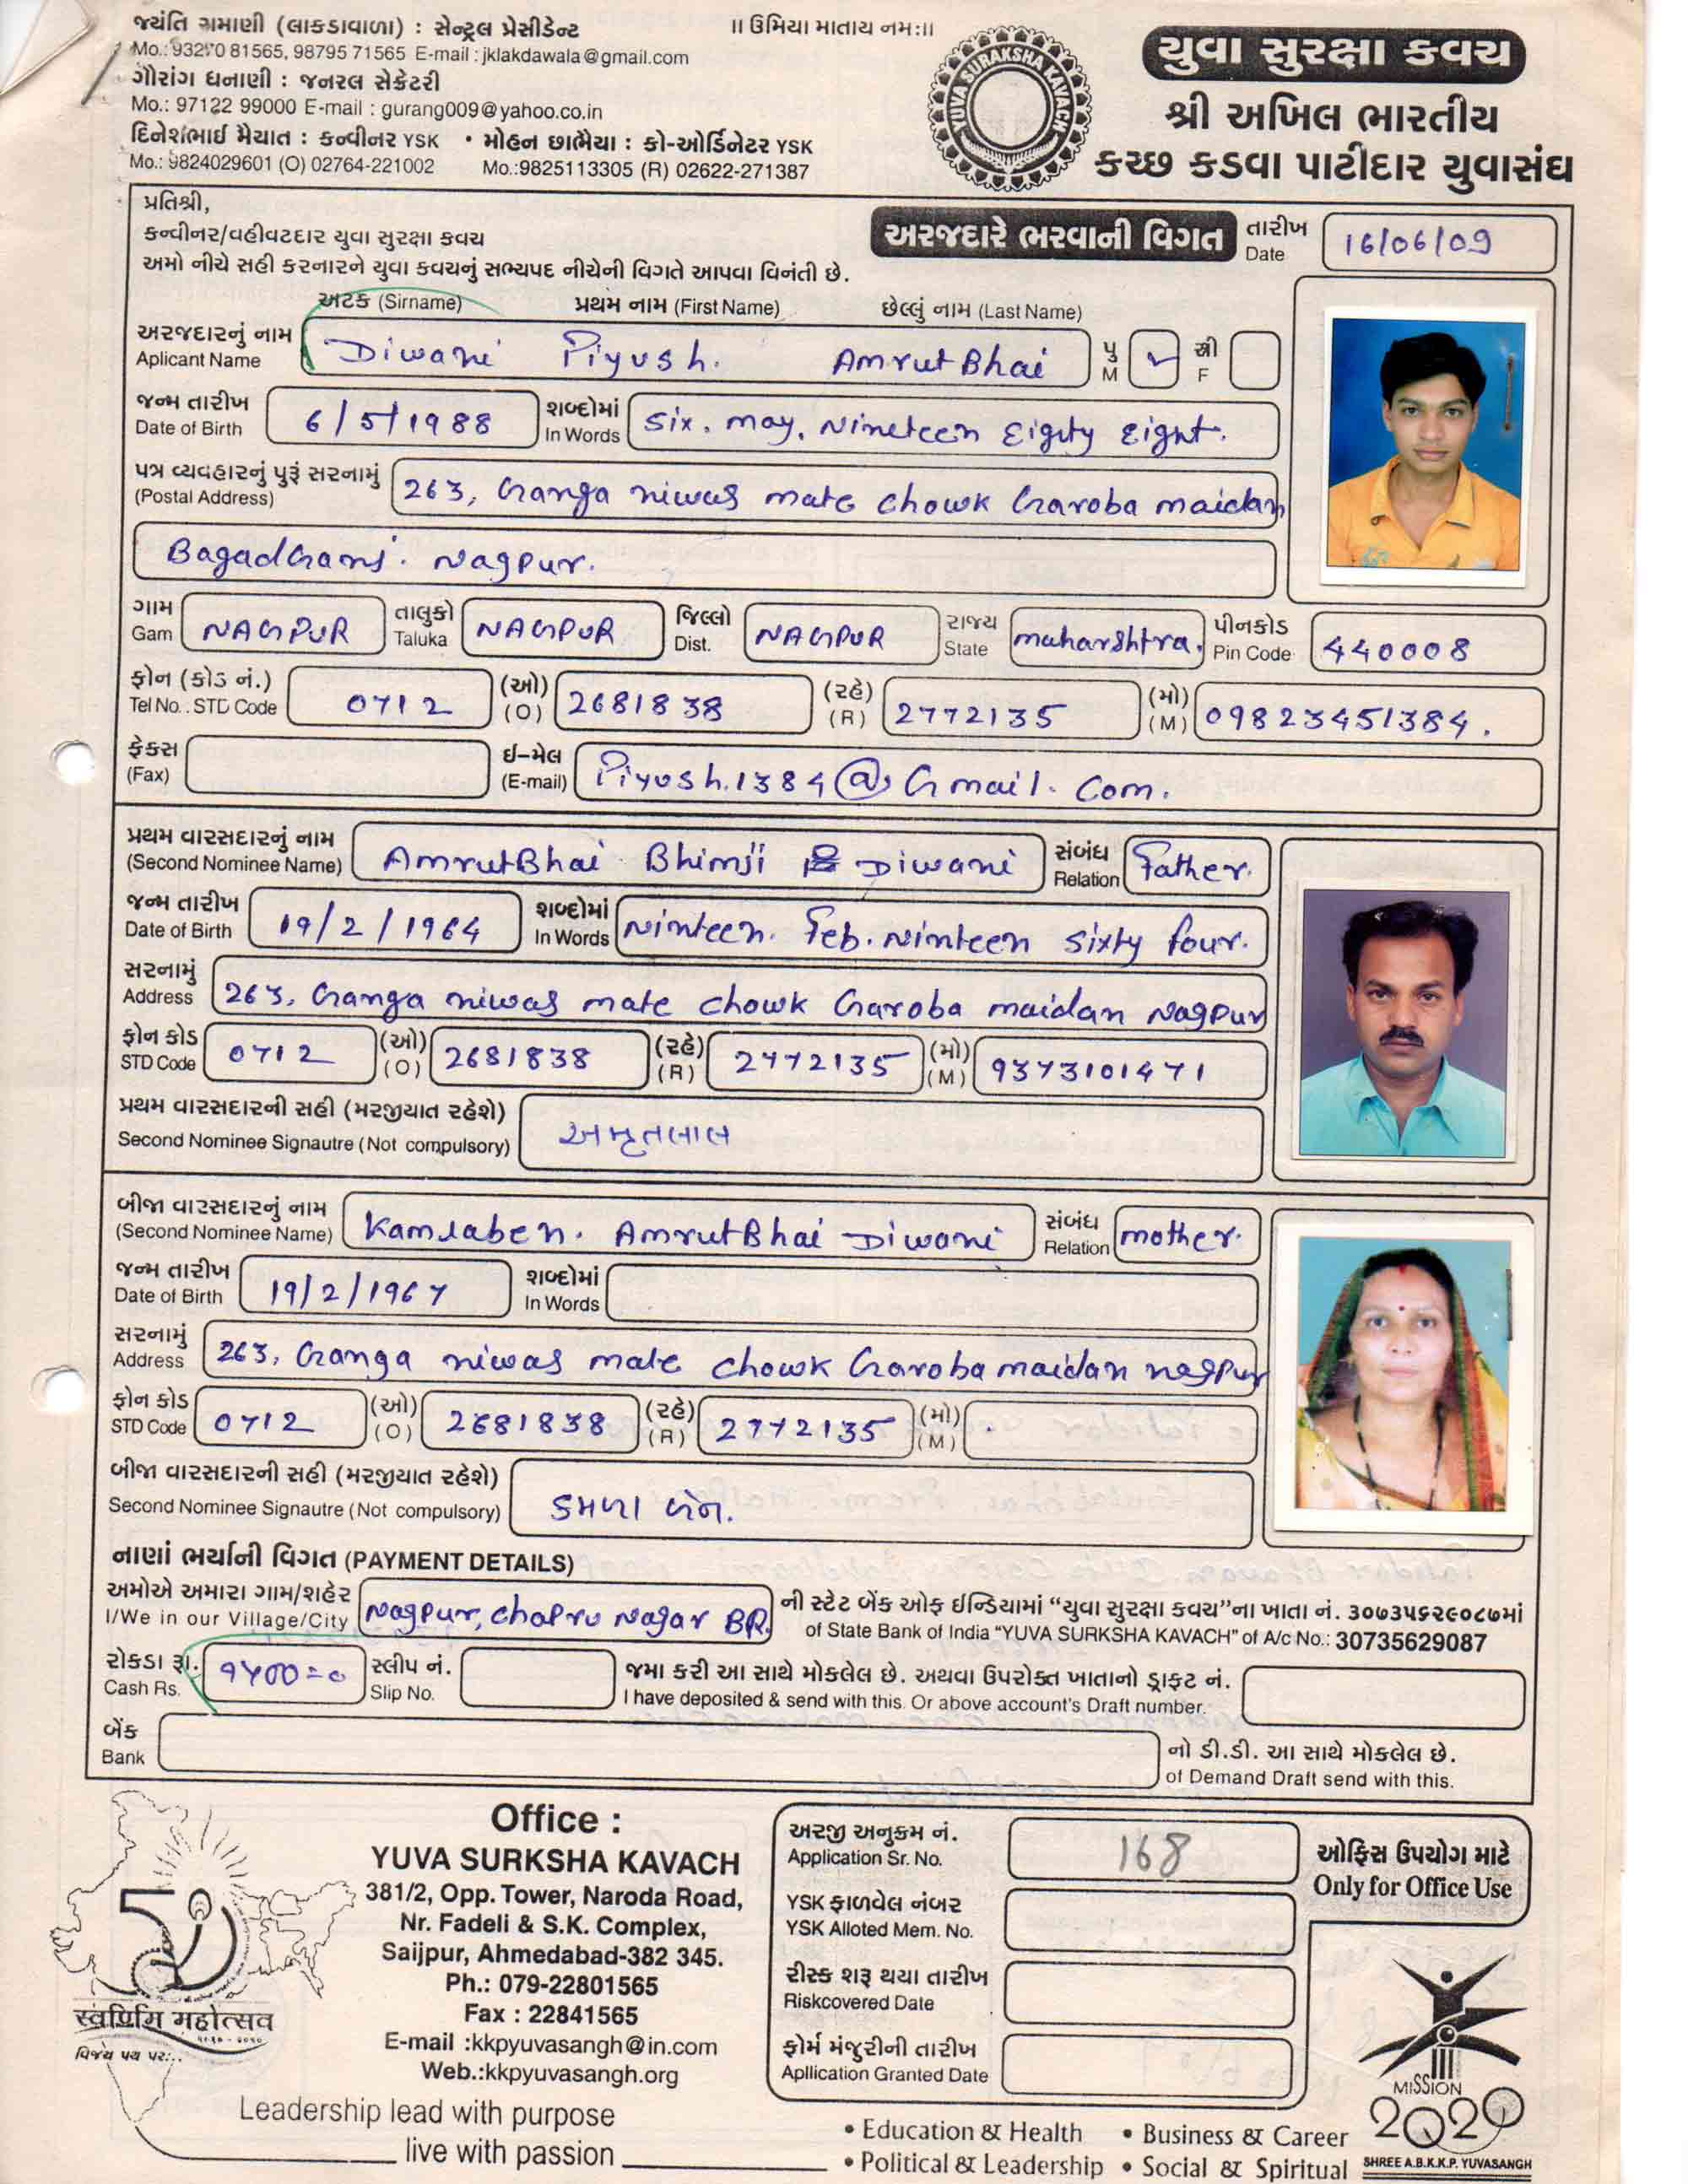 જયંતિ રામાણી (લાકડાવાળા) : સેન્ટ્રલ પ્રેસીડેન્ટ
Mo.: 93270 81565, 98795 71565 E-mail : jklakdawala@gmail.com
ગૌરાંગ ધનાણી : જનરલ સેક્રેટરી
Mo.: 97122 99000 E-mail : gurang009@yahoo.co.in
દિનેશભાઈ મૈયાત : કન્વીનર YSK • મોહન છાભૈયા : કો-ઓર્ડિનેટર YSK
Mo.: 9824029601 (O) 02764-221002 Mo.:9825113305 (R) 02622-271387
॥ ઉમિયા માતાય નમઃ॥
YUVA SURAKSHA KAVACH
યુવા સુરક્ષા કવચ
શ્રી અખિલ ભારતીય
કચ્છ કડવા પાટીદાર યુવાસંઘ
પ્રતિશ્રી,
કન્વીનર/વહીવટદાર યુવા સુરક્ષા કવચ
અમો નીચે સહી કરનારને યુવા કવચનું સભ્યપદ નીચેની વિગતે આપવા વિનંતી છે.
અરજદારે ભરવાની વિગત
તારીખ Date 16/06/09
અટક (Sirname) પ્રથમ નામ (First Name) છેલ્લું નામ (Last Name)
અરજદારનું નામ Aplicant Name Diwani Piyush. AmrutBhai પુ M ✓ સ્ત્રી F
જન્મ તારીખ Date of Birth 6/5/1988 શબ્દોમાં In Words Six. may. Nineteen Eigity Eight.
પત્ર વ્યવહારનું પુરૂં સરનામું (Postal Address) 263, Ganga niwas mate chowk Garoba maidan
BagadGanj. Nagpur.
ગામ Gam NAGPUR તાલુકો Taluka NAGPUR જિલ્લો Dist. NAGPUR રાજ્ય State maharshtra. પીનકોડ Pin Code 440008
ફોન (કોડ નં.) Tel No. . STD Code 0712 (ઓ) (O) 2681838 (રહે) (R) 2772135 (મો) (M) 09823451384.
ફેકસ (Fax) ઈ-મેલ (E-mail) Piyush.1384@Gmail.Com.
પ્રથમ વારસદારનું નામ (Second Nominee Name) AmrutBhai Bhimji Diwani સંબંધ Relation Father.
જન્મ તારીખ Date of Birth 19/2/1964 શબ્દોમાં In Words Ninteen. Feb. Ninteen sixty four.
સરનામું Address 263, Ganga niwas mate chowk Garoba maidan Nagpur
ફોન કોડ STD Code 0712 (ઓ) (O) 2681838 (રહે) (R) 2772135 (મો) (M) 9373101471
પ્રથમ વારસદારની સહી (મરજીયાત રહેશે)
Second Nominee Signautre (Not compulsory) અમૃતલાલ
બીજા વારસદારનું નામ (Second Nominee Name) Kamlaben. AmrutBhai Diwani સંબંધ Relation mother.
જન્મ તારીખ Date of Birth 19/2/1967 શબ્દોમાં In Words
સરનામું Address 263, Ganga niwas mate chowk Garoba maidan nagpur
ફોન કોડ STD Code 0712 (ઓ) (O) 2681838 (રહે) (R) 2772135 (મો) (M)
બીજા વારસદારની સહી (મરજીયાત રહેશે)
Second Nominee Signautre (Not compulsory) કમળા બેન.
નાણાં ભર્યાની વિગત (PAYMENT DETAILS)
અમોએ અમારા ગામ/શહેર Nagpur, chapru Nagar BR. ની સ્ટેટ બેંક ઓફ ઈન્ડિયામાં “યુવા સુરક્ષા કવચ”ના ખાતા નં. ૩૦૭૩૫૬૨૯૦૮૭માં
I/We in our Village/City of State Bank of India “YUVA SURKSHA KAVACH” of A/c No.: 30735629087
રોકડા રૂા. ૧૫00=૦ સ્લીપ નં. જમા કરી આ સાથે મોકલેલ છે. અથવા ઉપરોક્ત ખાતાનો ડ્રાફટ નં.
Cash Rs. Slip No. I have deposited & send with this. Or above account's Draft number.
બેંક નો ડી.ડી. આ સાથે મોકલેલ છે.
Bank of Demand Draft send with this.
Office :
YUVA SURKSHA KAVACH
381/2, Opp. Tower, Naroda Road,
Nr. Fadeli & S.K. Complex,
Saijpur, Ahmedabad-382 345.
Ph.: 079-22801565
Fax : 22841565
E-mail :kkpyuvasangh@in.com
Web.:kkpyuvasangh.org
અરજી અનુક્રમ નં. Application Sr. No. 168
YSK ફાળવેલ નંબર YSK Alloted Mem. No.
રીસ્ક શરૂ થયા તારીખ Riskcovered Date
ફોર્મ મંજુરીની તારીખ Apllication Granted Date
ઓફિસ ઉપયોગ માટે
Only for Office Use
50
स्वर्णिम महोत्सव
વિજય પથ પર...
Leadership lead with purpose
live with passion
• Education & Health • Business & Career
• Political & Leadership • Social & Spiritual
MISSION
2020
SHREE A.B.K.K.P. YUVASANGH